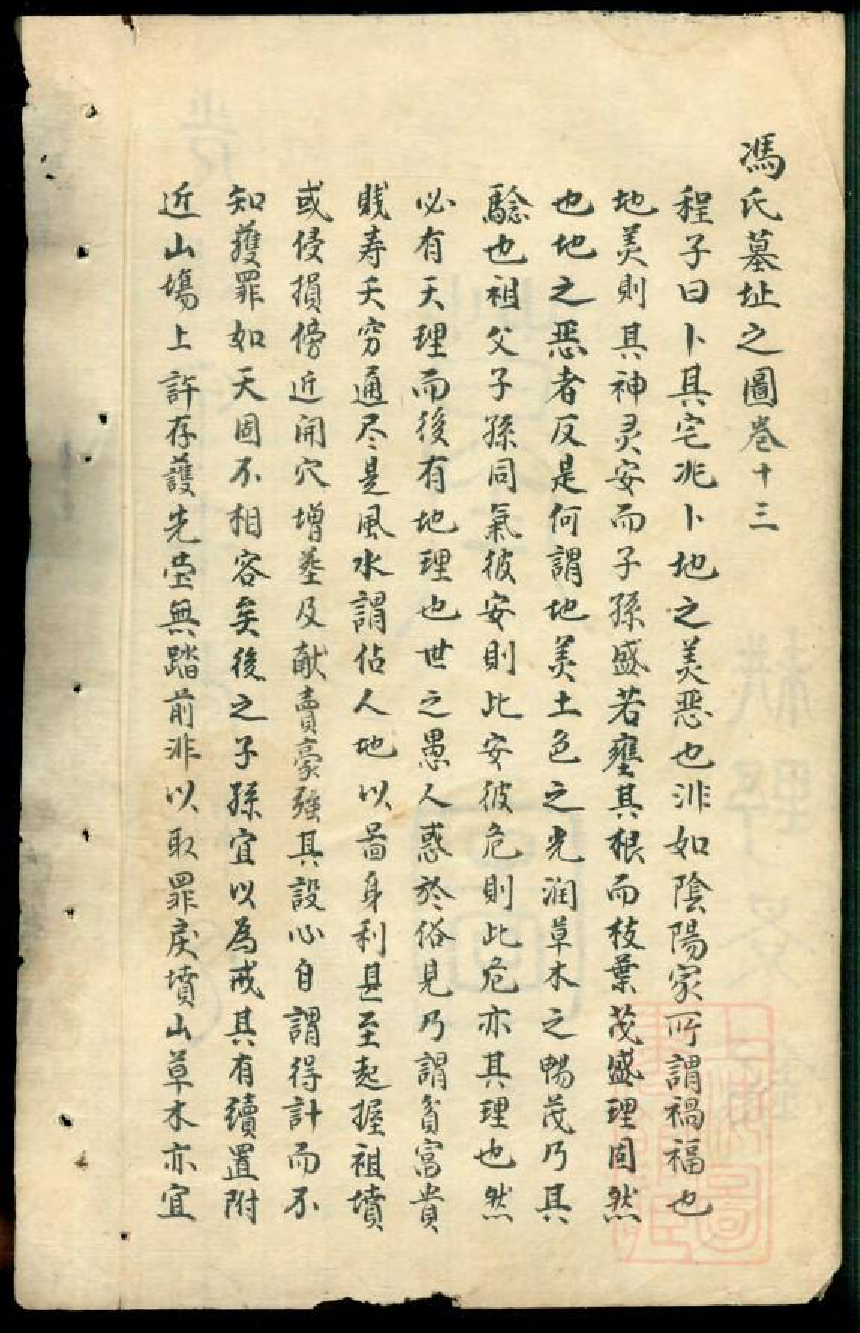 馮氏墓址之圖卷十三
程子曰卜其宅兆卜地之美恶也非如陰陽家所謂禍福也
地美則其神灵安而子孫盛若壅其根而枝葉茂盛理固然
也地之恶者反是何謂地美土色之光润草木之暢茂乃其
騐也祖父子孫同氣彼安則此安彼危則此危亦其理也然
必有天理而後有地理也世之愚人惑於俗見乃謂貧富貴
賎寿夭穷通尽是風水謂佔人地以啚身利甚至起握祖墳
或侵損傍近開穴增塟及献賣豪强其設心自謂得計而不
知獲罪如天固不相容矣後之子孫宜以為戒其有續置附
近山塲上許存護先塋無踏前非以取罪戾墳山草木亦宜